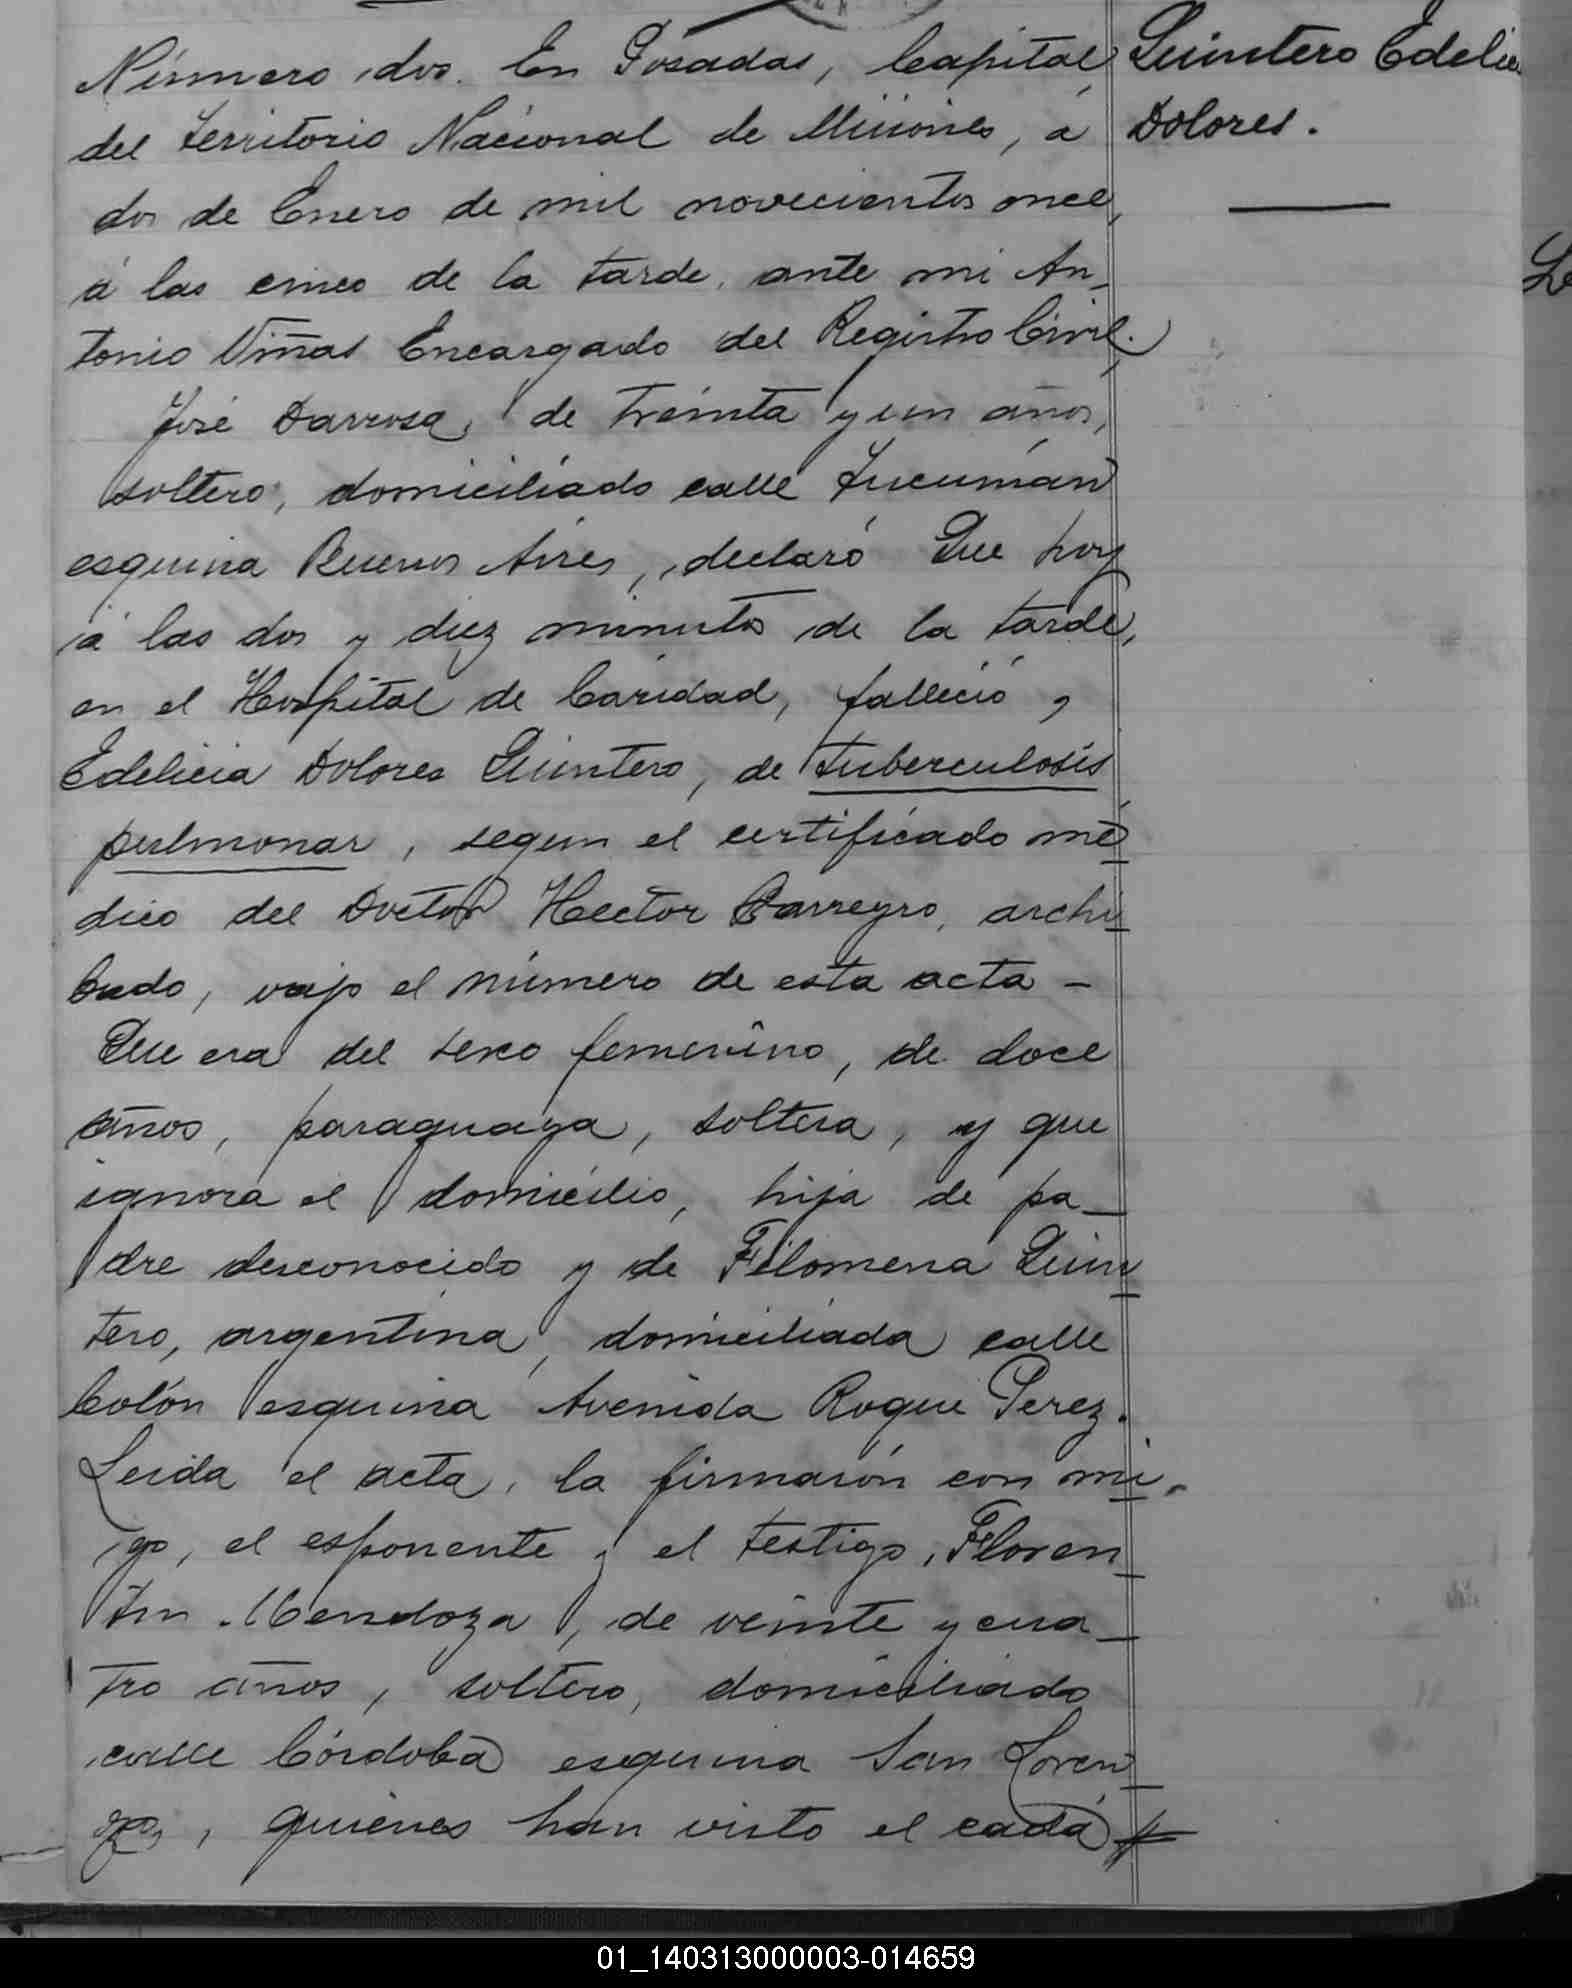 Número dos. En Posadas, Capital
del Territorio Nacional de Misiones, á
dos de Enero de mil novecientos once,
á las cinco de la tarde, ante mi An-
tonio Viñas Encargado del Registro Civil.
José Barrosa, de treinta y un años,
soltero, domiciliado calle Tucumán
esquina Buenos Aires, declaró Que hoy
á las dos y diez minutos de la tarde,
en el Hospital de Caridad, falleció,
Edelicia Dolores Quintero, de tuberculosis
pulmonar, segun el certificado mé
dico del Doctor Hector Barreyro, archi
bado, vajo el número de esta acta -
Que era del sexo femenino, de doce
años, paraguaya, soltera, y que
ignora el domicilio, hija de pa-
dre desconocido y de Filomena Quin
tero, argentina, domiciliada calle
Colón esquina Avenida Roque Perez.
Leida el acta, la firmarón con mi
go, el esponente y el testigo, Floren
tin Mendoza, de veinte y cua-
tro años, soltero, domiciliado
calle Córdoba esquina San Loren
zo, quienes han visto el cadá
Quintero Edelicia
Dolores.
01_140313000003-014659